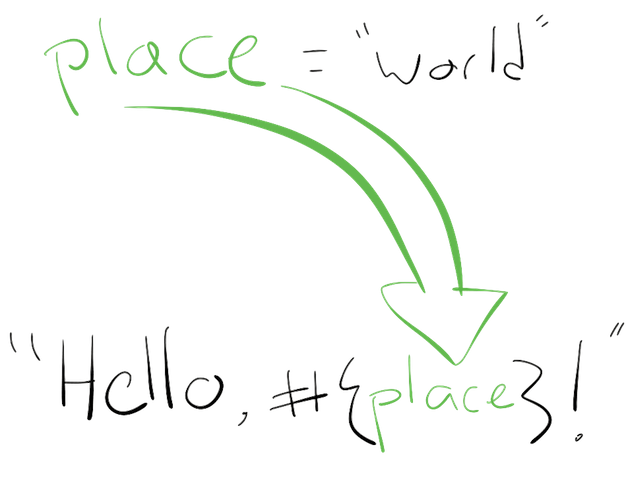 place = "world"
"Hello, #{place}!"